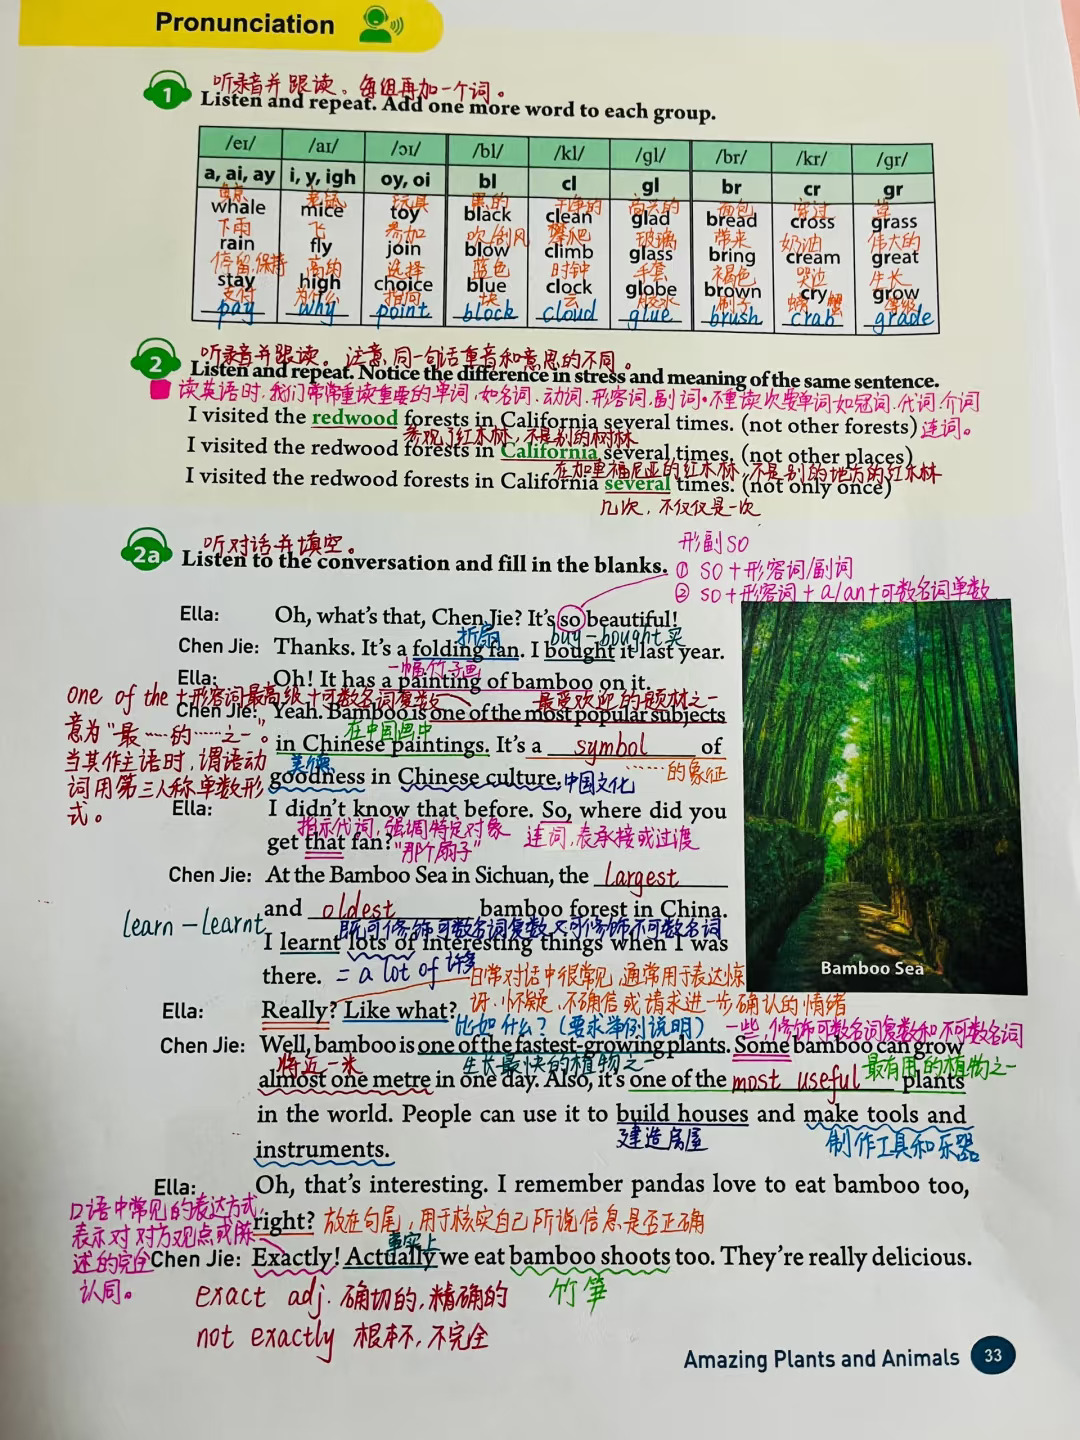 Pronunciation
1
听录音并跟读。每组再加一个词。
Listen and repeat. Add one more word to each group.
/eɪ/ /aɪ/ /ɔɪ/ /bl/ /kl/ /gl/ /br/ /kr/ /gr/
a, ai, ay i, y, igh oy, oi bl cl gl br cr gr
鲸 老鼠 玩具 黑的 干净的 高兴的 面包 穿过 草
whale mice toy black clean glad bread cross grass
下雨 飞 参加 吹/刮风 攀爬 玻璃 带来 奶油 伟大的
rain fly join blow climb glass bring cream great
停留,保持 高的 选择 蓝色 时钟 手套 褐色 哭泣 生长
stay high choice blue clock globe brown cry grow
支付 为什么 指向 块 云 胶水 刷子 螃蟹 等级
pay why point block cloud glue brush crab grade
2
听录音并跟读。注意同一句话重音和意思的不同。
Listen and repeat. Notice the difference in stress and meaning of the same sentence.
读英语时,我们常常重读重要的单词,如名词.动词.形容词.副词.不重读次要单词如冠词.代词.介词
I visited the redwood forests in California several times. (not other forests) 连词。
参观了红木林,不是别的树林
I visited the redwood forests in California several times. (not other places)
在加里福尼亚的红木林,不是别的地方的红木林
I visited the redwood forests in California several times. (not only once)
几次,不仅仅是一次
2a
听对话并填空。
Listen to the conversation and fill in the blanks.
形副so
① so+形容词/副词
② so+形容词+a/an+可数名词单数
Ella: Oh, what's that, Chen Jie? It's so beautiful!
折扇 buy-bought 买
Chen Jie: Thanks. It's a folding fan. I bought it last year.
一幅竹子画
Ella: Oh! It has a painting of bamboo on it.
one of the+形容词最高级+可数名词复数 最受欢迎的题材之一
Chen Jie: Yeah. Bamboo is one of the most popular subjects
意为"最……的……之一"。
在中国画中
in Chinese paintings. It's a symbol of
当其作主语时,谓语动 美德 ……的象征
goodness in Chinese culture. 中国文化
词用第三人称单数形
式。
Ella: I didn't know that before. So, where did you
指示代词,强调特定对象 连词,表承接或过渡
get that fan? "那个扇子"
Chen Jie: At the Bamboo Sea in Sichuan, the largest
and oldest bamboo forest in China.
learn-learnt 既可修饰可数名词复数又可修饰不可数名词
I learnt lots of interesting things when I was
there. = a lot of 许多 日常对话中很常见,通常用于表达惊
讶.怀疑.不确信或请求进一步确认的情绪
Ella: Really? Like what?
比如什么?(要求举例说明) 一些,修饰可数名词复数和不可数名词
Chen Jie: Well, bamboo is one of the fastest-growing plants. Some bamboo can grow
将近一米 生长最快的植物之一 最有用的植物之一
almost one metre in one day. Also, it's one of the most useful plants
in the world. People can use it to build houses and make tools and
建造房屋 制作工具和乐器
instruments.
Ella: Oh, that's interesting. I remember pandas love to eat bamboo too,
right? 放在句尾,用于核实自己所说信息是否正确
口语中常见的表达方式,
表示对对方观点或陈
述的完全
认同。
事实上
Chen Jie: Exactly! Actually we eat bamboo shoots too. They're really delicious.
exact adj. 确切的,精确的 竹笋
not exactly 根本不,不完全
Bamboo Sea
Amazing Plants and Animals 33